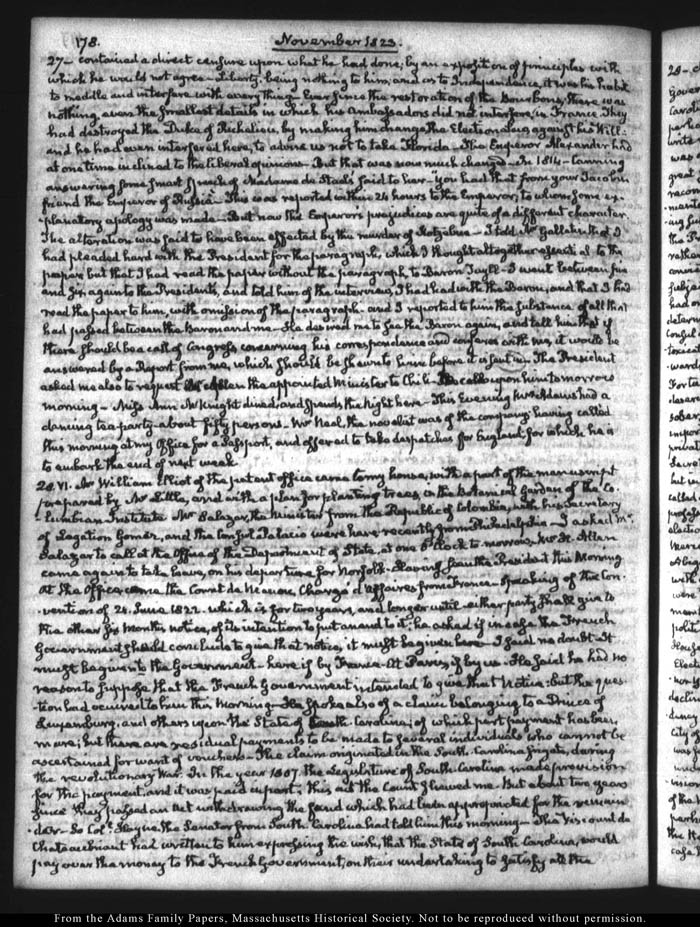 178. November 1823.
27— contained a direct censure upon what he had done; by an exposition of principles with
which he would not agree— Liberty, being nothing to him; and as to Independence, it was his habit
to meddle and interfere with every thing— Ever since the restoration of the Bourbons, there was
nothing, even the smallest details in which his Ambassadors did not interfere, in France. They
had destroyed the Duke of Richelieu, by making him change the Election Law against his Will:
and he had even interfered here, to advise us not to take Florida— The Emperor Alexander had
at one time inclined to the liberal opinions— But that was now much changed— In 1814— Canning
answering some smart speech of Madame de Stael's said to her— you had that from your Jacobin
friend the Emperor of Russia— This was reported within 24 hours to the Emperor; to whom some ex-
-planatory apology was made— But now the Emperor's prejudices are quite of a different character.
The alteration was said to have been effected by the murder of Kotzebue— I told Mr Gallatin that I
had pleaded hard with the President for the paragraph, which I thought altogether essential to the
paper; but that I had read the paper without the paragraph to Baron Tuyll— I went between five
and six, again to the Presidents, and told him of the interview, I had had with the Baron, and that I had
read the paper to him, with omission of the paragraph— and I reported to him the substance of all that
had passed between the Baron and me— He desired me to see the Baron again, and tell him that if
there should be a call of Congress concerning his correspondence and conferences with me, it would be
answered by a Report from me, which should be shewn to him before it is sent in— The President
asked me also to request Mr Allen the appointed Minister to Chili— to call upon him to morrow
morning— Miss Ann McKnight dined, and spends the Night here— This Evening Mrs Adams had a
dancing tea-party— about fifty persons. Mr Neal, the novelist was of the company; having called
this morning at my Office for a Passport, and offered to take despatches for England; for which he is
to embark the end of next week.
28. VI. Mr William Elliot of the patent office came to my house, with a part of the manuscript
prepared by Mr Little, and with a plan for planting trees, in the Botanical Garden of the Co-
-lumbian Institute. Mr Salazar, the Minister from the Republic of Colombia, with his Secretary
of Legation Gomez, and the Consul Palacio were here recently from Philadelphia— I asked Mr
Salazar to call at the Office of the Department of State, at one O'Clock to-morrow. Mr H. Allen
came again to take leave, on his departure for Norfolk— Having seen the President this Morning
At the Office, came the Count de Menou, Chargé d'Affaires from France— Speaking of the Con-
-vention of 24. June 1822. which is for two years, and longer until either party shall give to
the other six Months notice, of its intention to put an end to it; he asked if in case the French
Government should conclude to give that notice, it might be given here— I said no doubt— It
must be given to the Government— here if by France— At Paris, if by us— He said he had no
reason to suppose that the French Government intended to give that Notice; but the ques-
-tion had occurred to him this Morning— He spoke also of a claim belonging to a Prince of
Luxemburg, and others upon the State of South Carolina; of which part payment has been
made; but there are residual payments to be made to several individuals who cannot be
ascertained for want of vouchers— The claim originated in the South-Carolina frigate, during
the revolutionary War. In the year 1807. the Legislature of South-Carolina made provision
for the payment, and it was paid in part; this act the Count shewed me. But about two years
since they passed an Act withdrawing the fund which had been appropriated for the remain-
-der— So Col. Hayne, the Senator from South Carolina had told him this morning— The Viscount de
Chateaubriant had written to him expressing the wish, that the State of South Carolina, would
pay over the money to the French Government, on their undertaking to satisfy all the
From the Adams Family Papers, Massachusetts Historical Society. Not to be reproduced without permission.